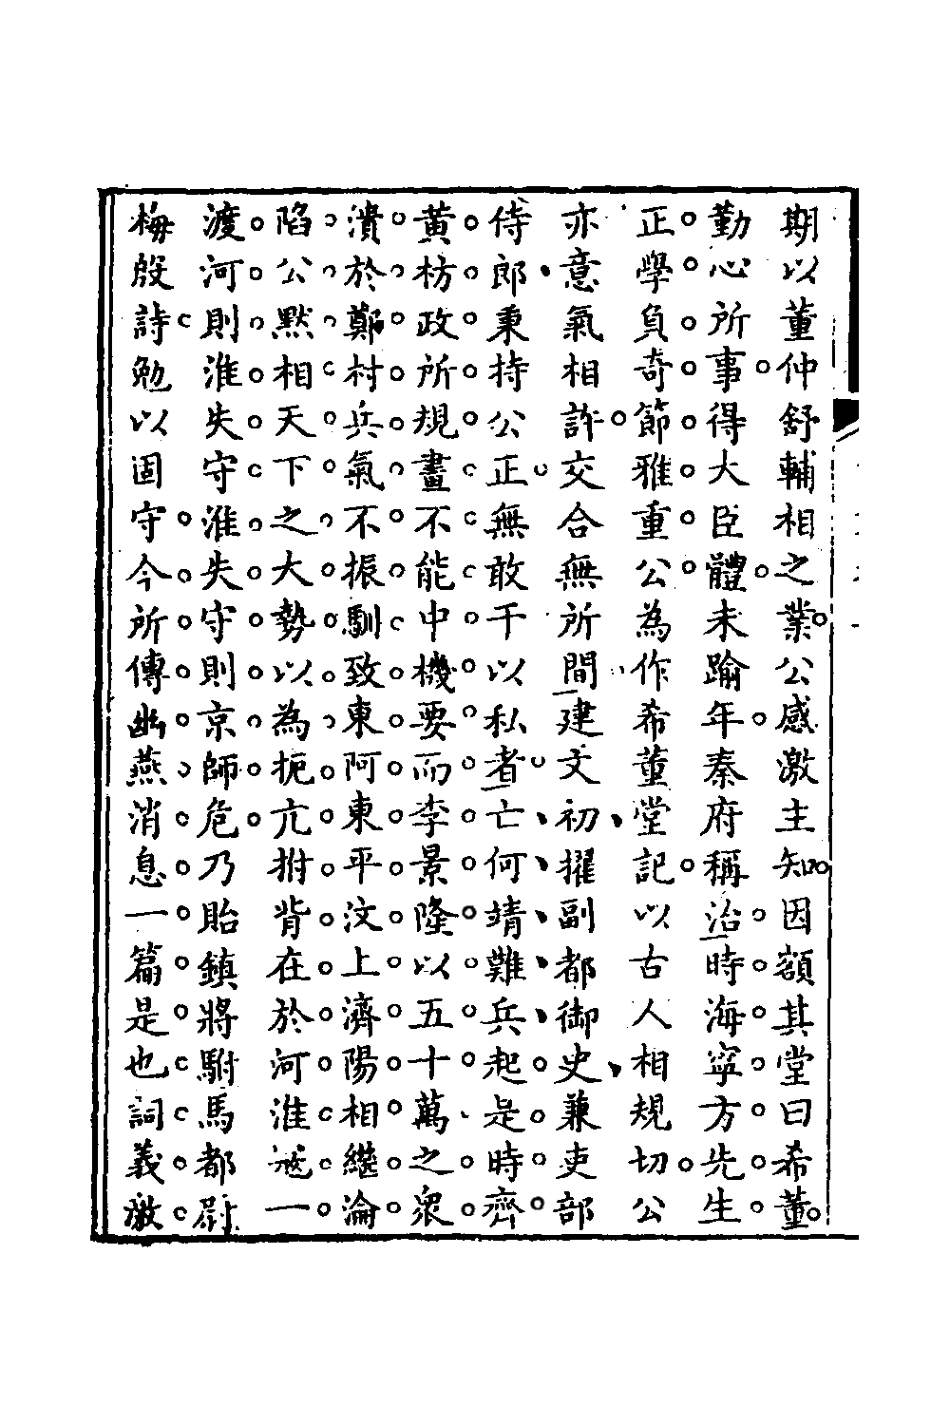 期以董仲舒輔相之業公感激主知因額其堂曰希董
勤心所事得大臣體未踰年秦府稱治時海寧方先生
正學負奇節雅重公為作希董堂記以古人相規切公
亦意氣相許交合無所間建文初擢副都御史兼吏部
侍郎秉持公正無敢干以私者亡何靖難兵起是時齊
黃枋政所規畫不能中機要而李景隆以五十萬之眾
潰於鄭村兵氣不振馴致東阿東平汶上濟陽相繼淪
陷公默相天下之大勢以為扼亢拊背在於河淮一
渡河則淮失守淮失守則京師危乃貽鎮將駙馬都尉
梅殷詩勉以固守今所傳幽燕消息一篇是也詞義激